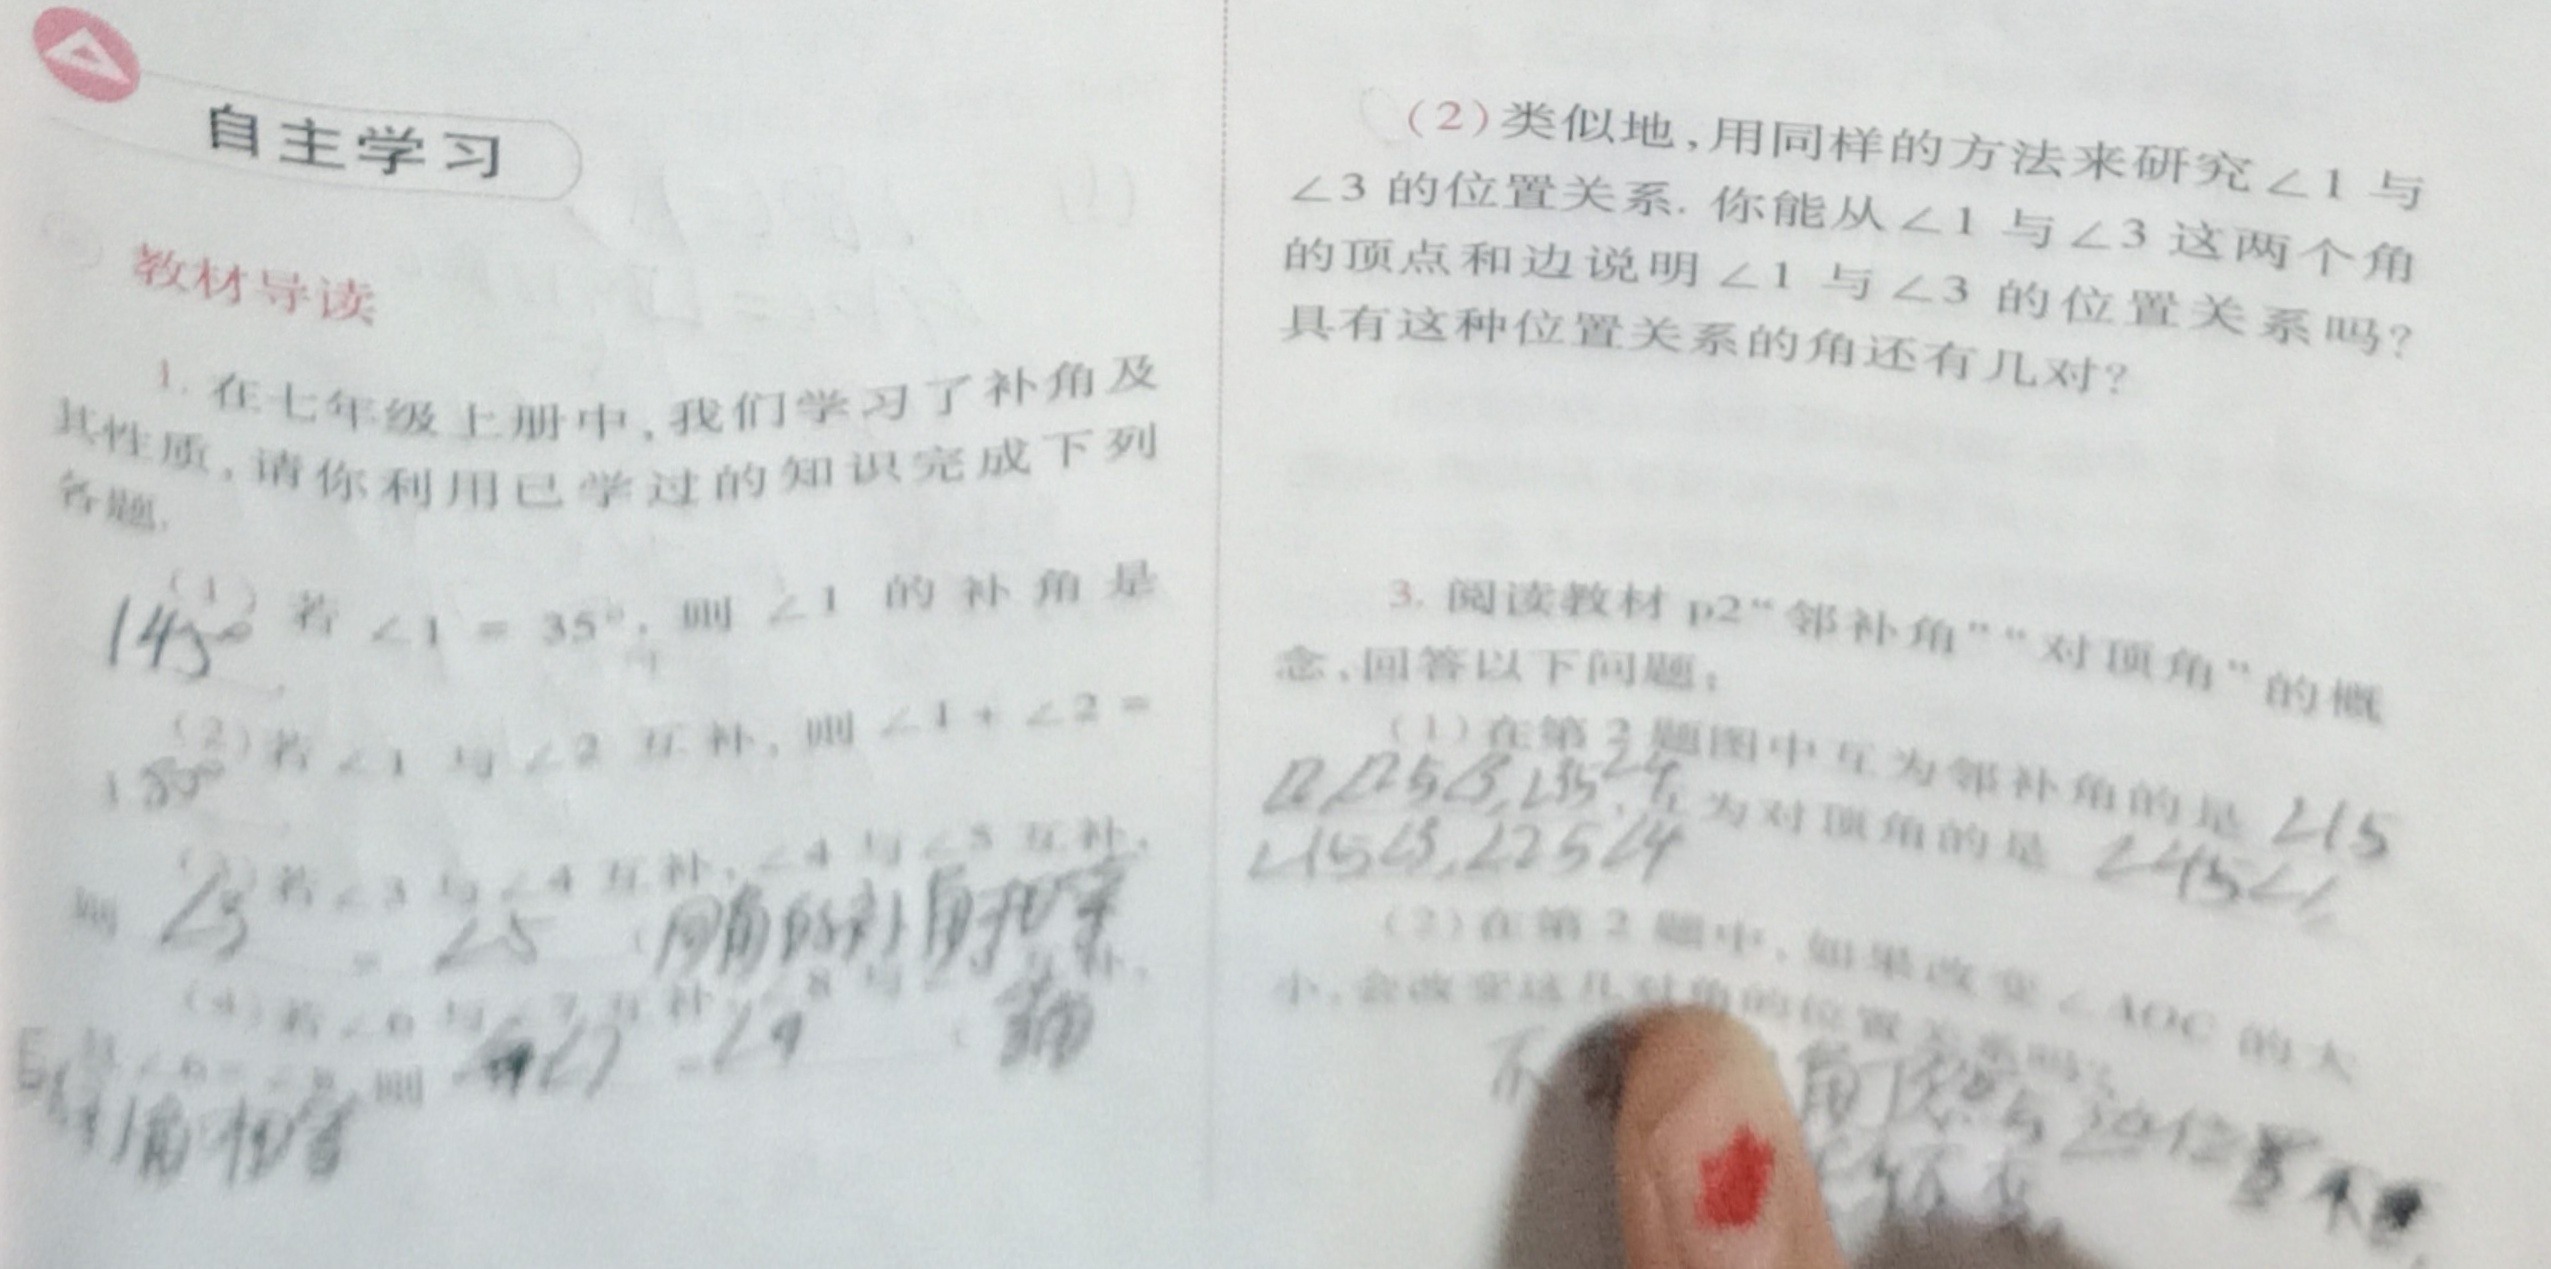 自主学习
教材导读
1. 在七年级上册中,我们学习了补角及
其性质,请你利用已学过的知识完成下列
各题.
(1) 若 ∠1 = 35°, 则 ∠1 的补角是
145°
(2) 若 ∠1 与 ∠2 互补, 则 ∠1 + ∠2 =
180°
(3) 若 ∠3 与 ∠4 互补, ∠4 与 ∠5 互补,
则 ∠3 = ∠5 (同角的补角相等
(4) 若 ∠6 与 ∠7 互补, ∠8 与 补,
∠6 = ∠8, 则 ∠7 = ∠9 ( 等角
补角相等
(2)类似地,用同样的方法来研究∠1 与
∠3 的位置关系. 你能从∠1 与∠3 这两个角
的顶点和边说明∠1 与∠3 的位置关系吗?
具有这种位置关系的角还有几对?
3. 阅读教材 p2“邻补角”“对顶角”的概
念,回答以下问题:
(1)在第 2 题图中互为邻补角的是 ∠1与
∠2,∠2与∠3,∠3与∠4, 互为对顶角的是 ∠4与∠1
∠1与∠3,∠2与∠4
(2)在第 2 题中,如果改变∠AOC 的大
小,会改变这几对角的位置关系吗?
不 角顶点与边位置不